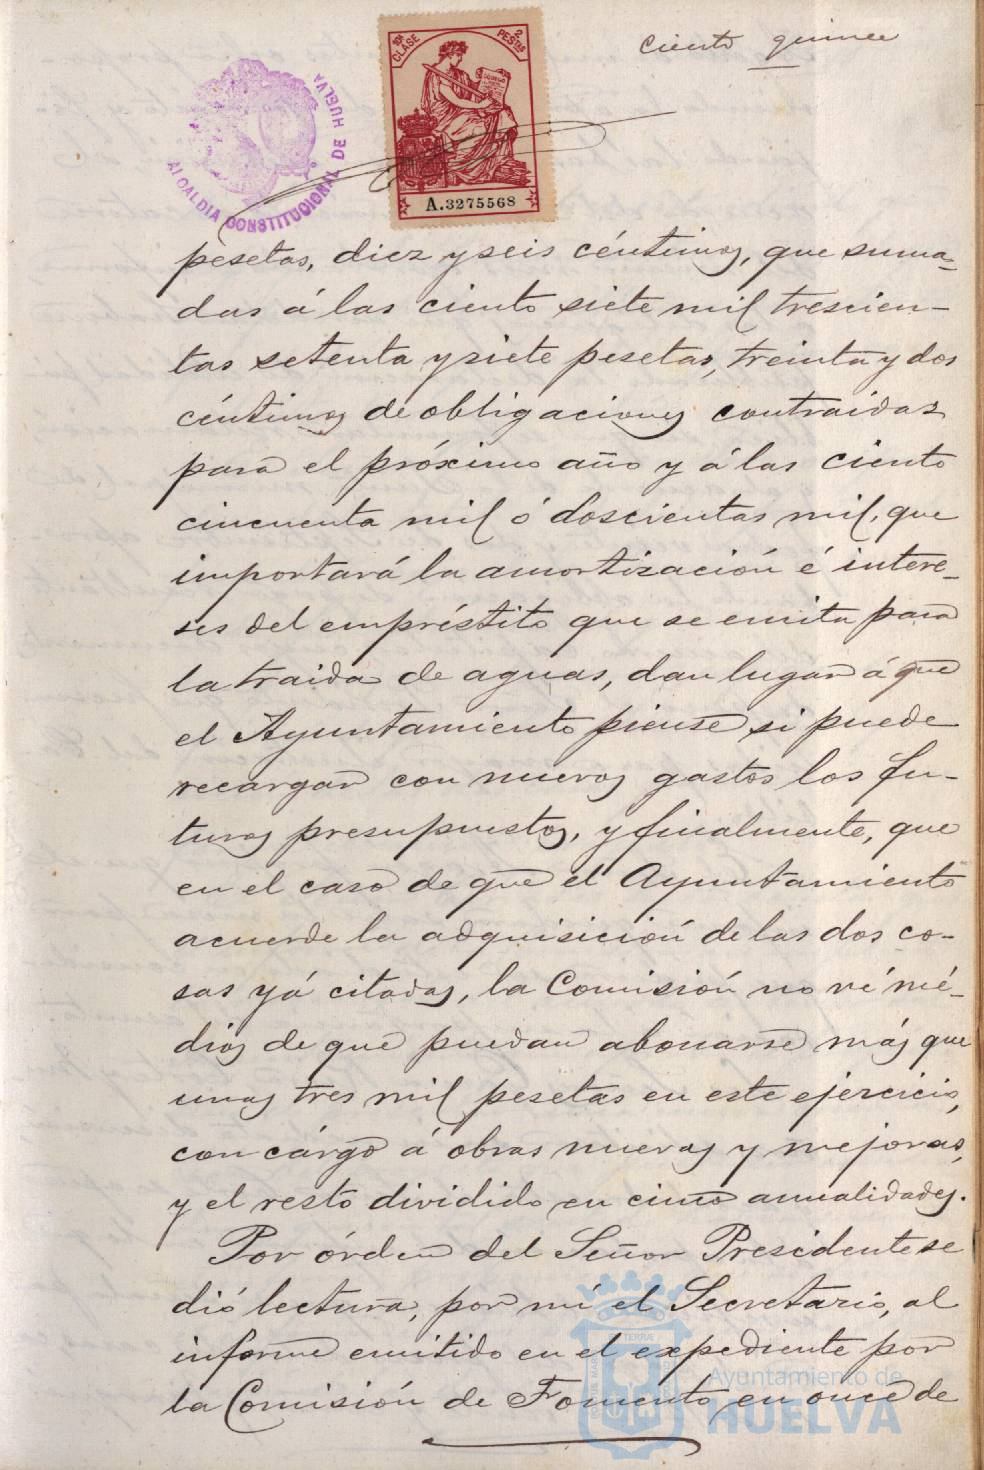 Ciento quince
10ª CLASE
2 PESTAS
A.3275568
ALCALDIA CONSTITUCIONAL DE HUELVA
pesetas, diez y seis céntimos, que suma-
das á las ciento siete mil trescien-
tas setenta y siete pesetas, treinta y dos
céntimos de obligaciones contraidas
para el próximo año y á las ciento
cincuenta mil ó doscientas mil, que
importará la amortización é intere-
ses del empréstito que se emita para
la traida de aguas, dan lugar á que
el Ayuntamiento piense si puede
recargar con nuevos gastos los fu-
turos presupuestos, y finalmente, que
en el caso de que el Ayuntamiento
acuerde la adquisición de las dos co-
sas yá citadas, la Comisión no vé mé-
dios de que puedan abonarse más que
unas tres mil pesetas en este ejercicio,
con cárgo á obras nuevas y mejoras,
y el resto dividido en cinco anualidades.
Por órden del Señor Presidente se
dió lectura, por mí el Secretario, al
informe emitido en el expediente por
la Comisión de Fomento en once de
Ayuntamiento de
HUELVA